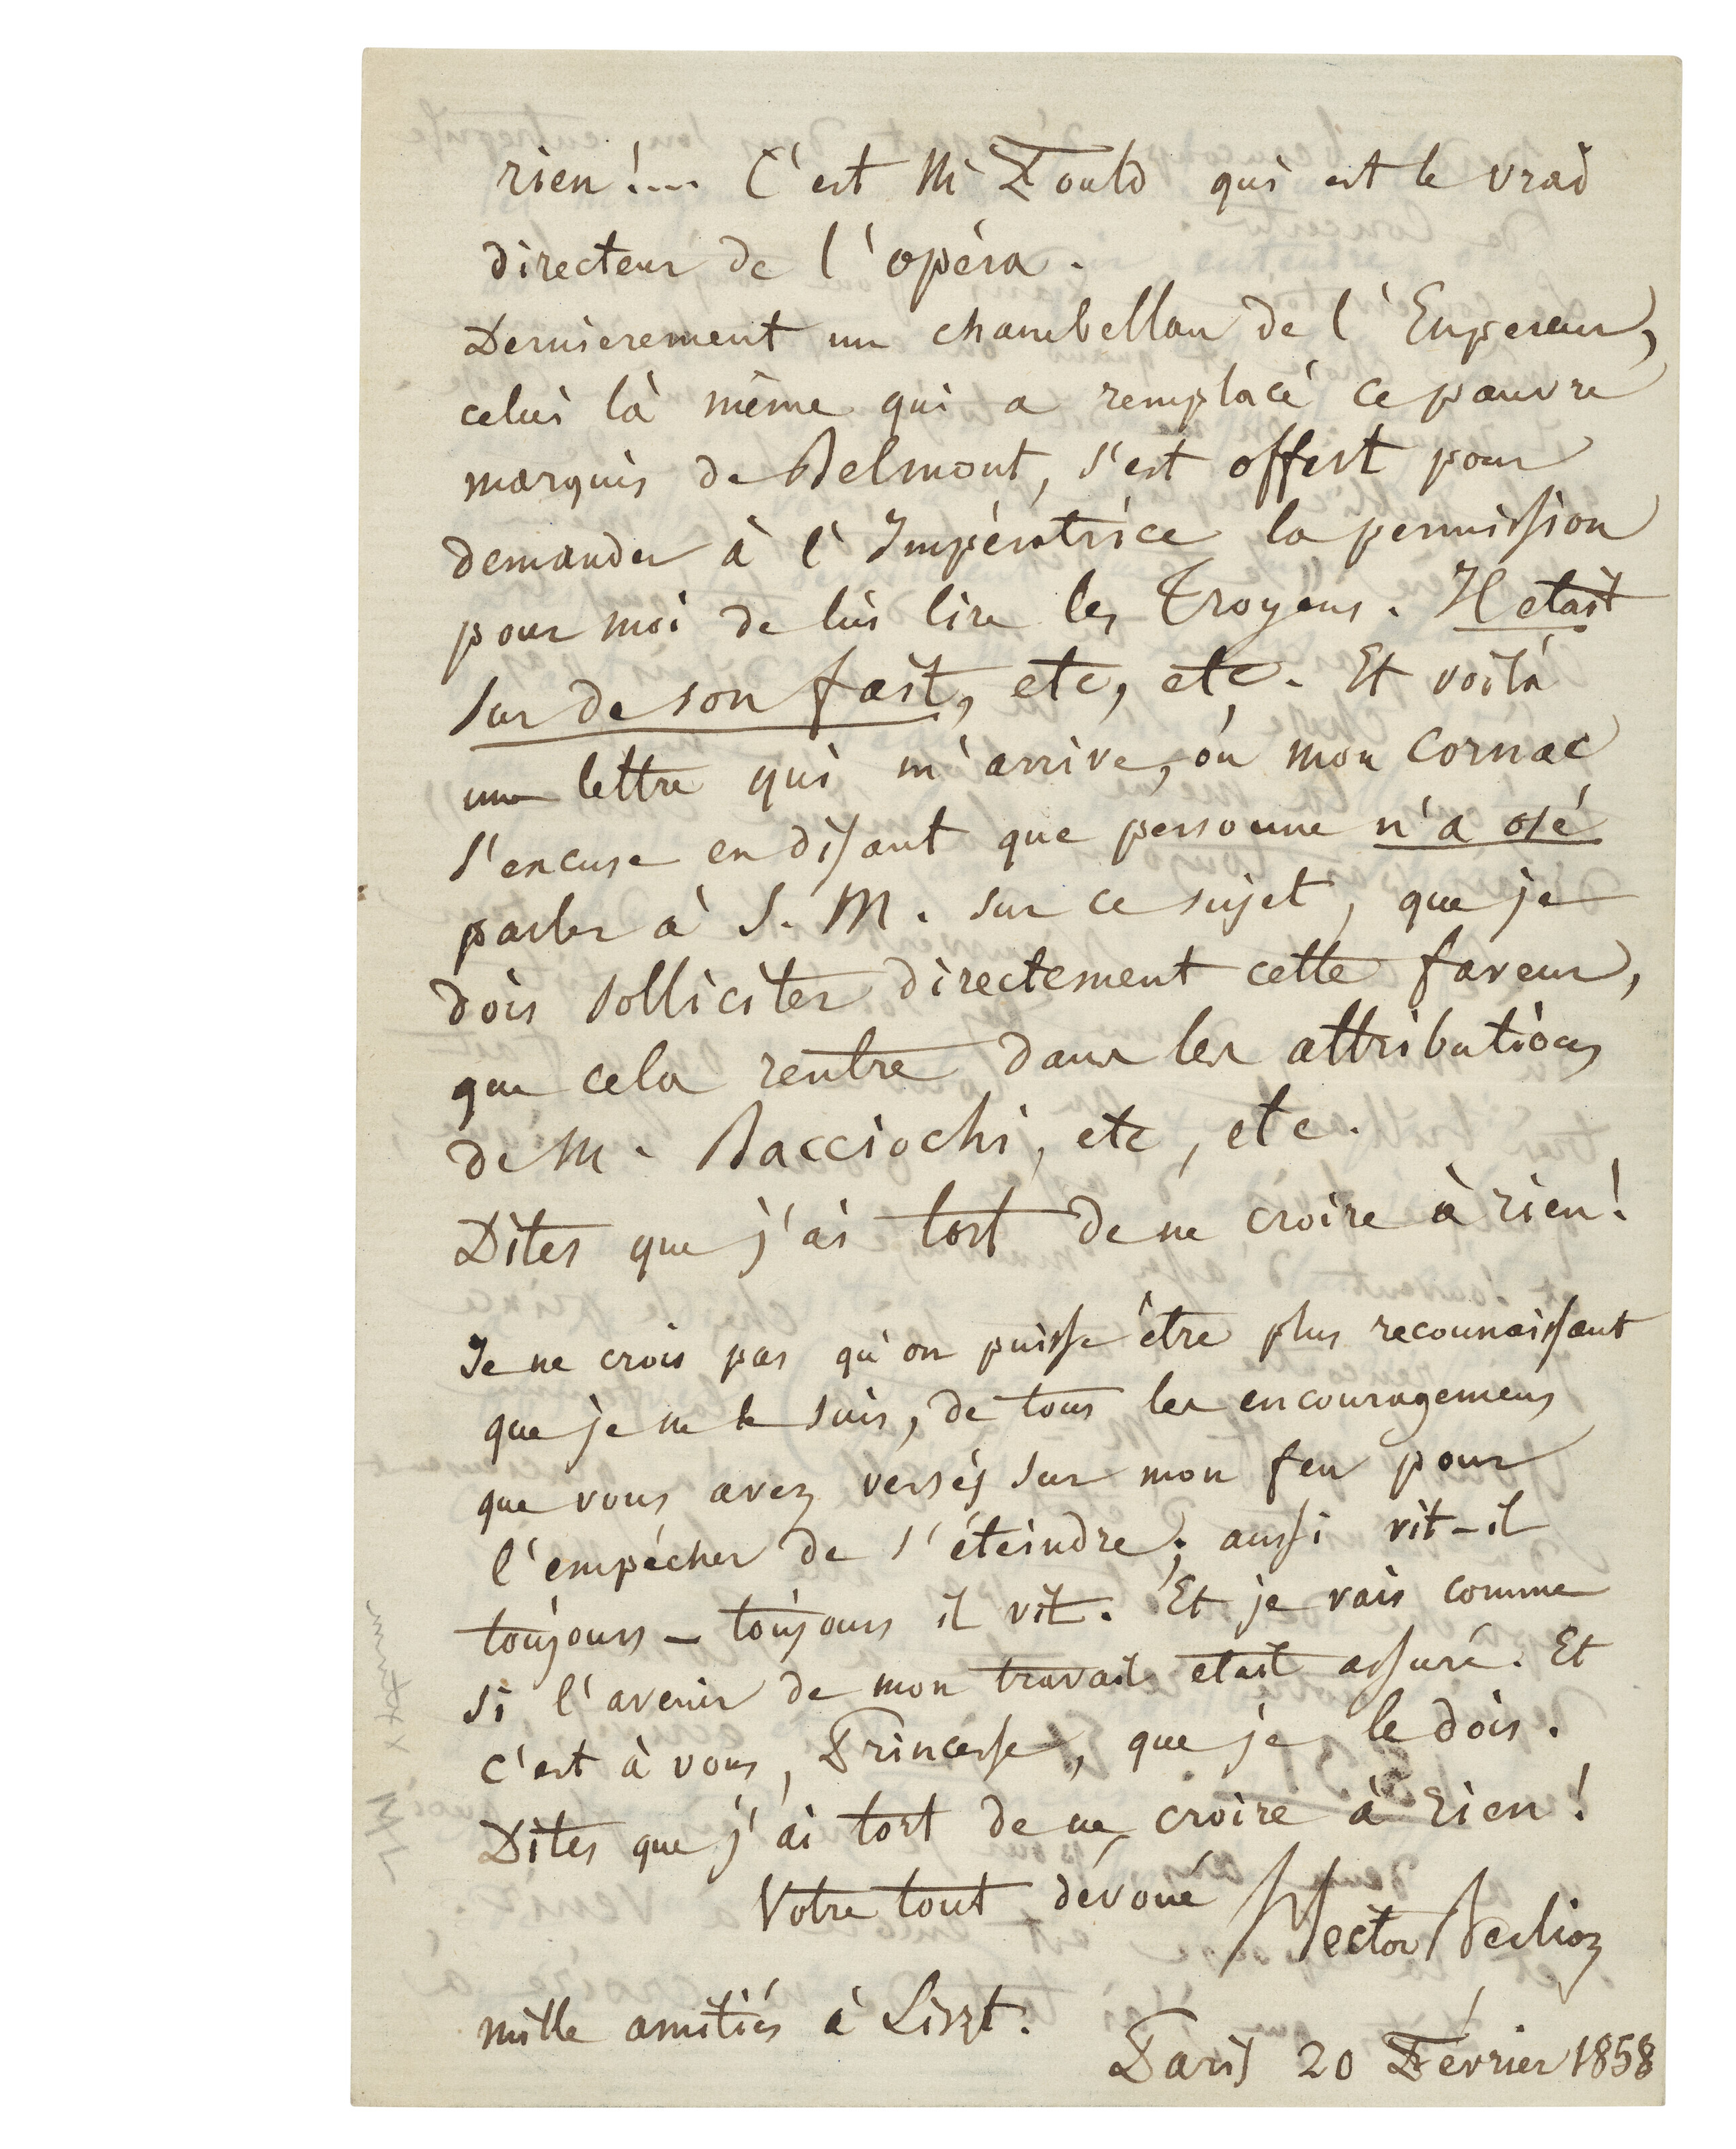 rien !... C'est Mr Fould qui est le vrai
directeur de l'opéra.
Dernierement un chambellan de l'Empereur,
celui là même qui a remplacé ce pauvre
marquis de Belmont, s'est offert pour
demander à l'Impératrice la permission
pour moi de lui lire les Troyens. Il etait
sur de son fait, etc, etc. Et voilà
une lettre qui m'arrive, où mon cornac
s'excuse en disant que personne n'a osé
parler à S. M. sur ce sujet, que je
dois solliciter directement cette faveur,
que cela rentre dans les attributions
de M. Bacciochi, etc, etc.
Dites que j'ai tort de ne croire à rien !
Je ne crois pas qu'on puisse être plus reconnaissant
que je ne le suis, de tous les encouragemens
que vous avez versés sur mon feu pour
l'empécher de s'éteindre ; aussi vit-il
toujours - toujours il vit. Et je vais comme
si l'avenir de mon travail etait assuré. Et
c'est à vous, Princesse, que je le dois.
Dites que j'ai tort de ne croire à rien !
Votre tout dévoué Hector Berlioz
mille amitiés à Liszt.
Paris 20 Février 1858